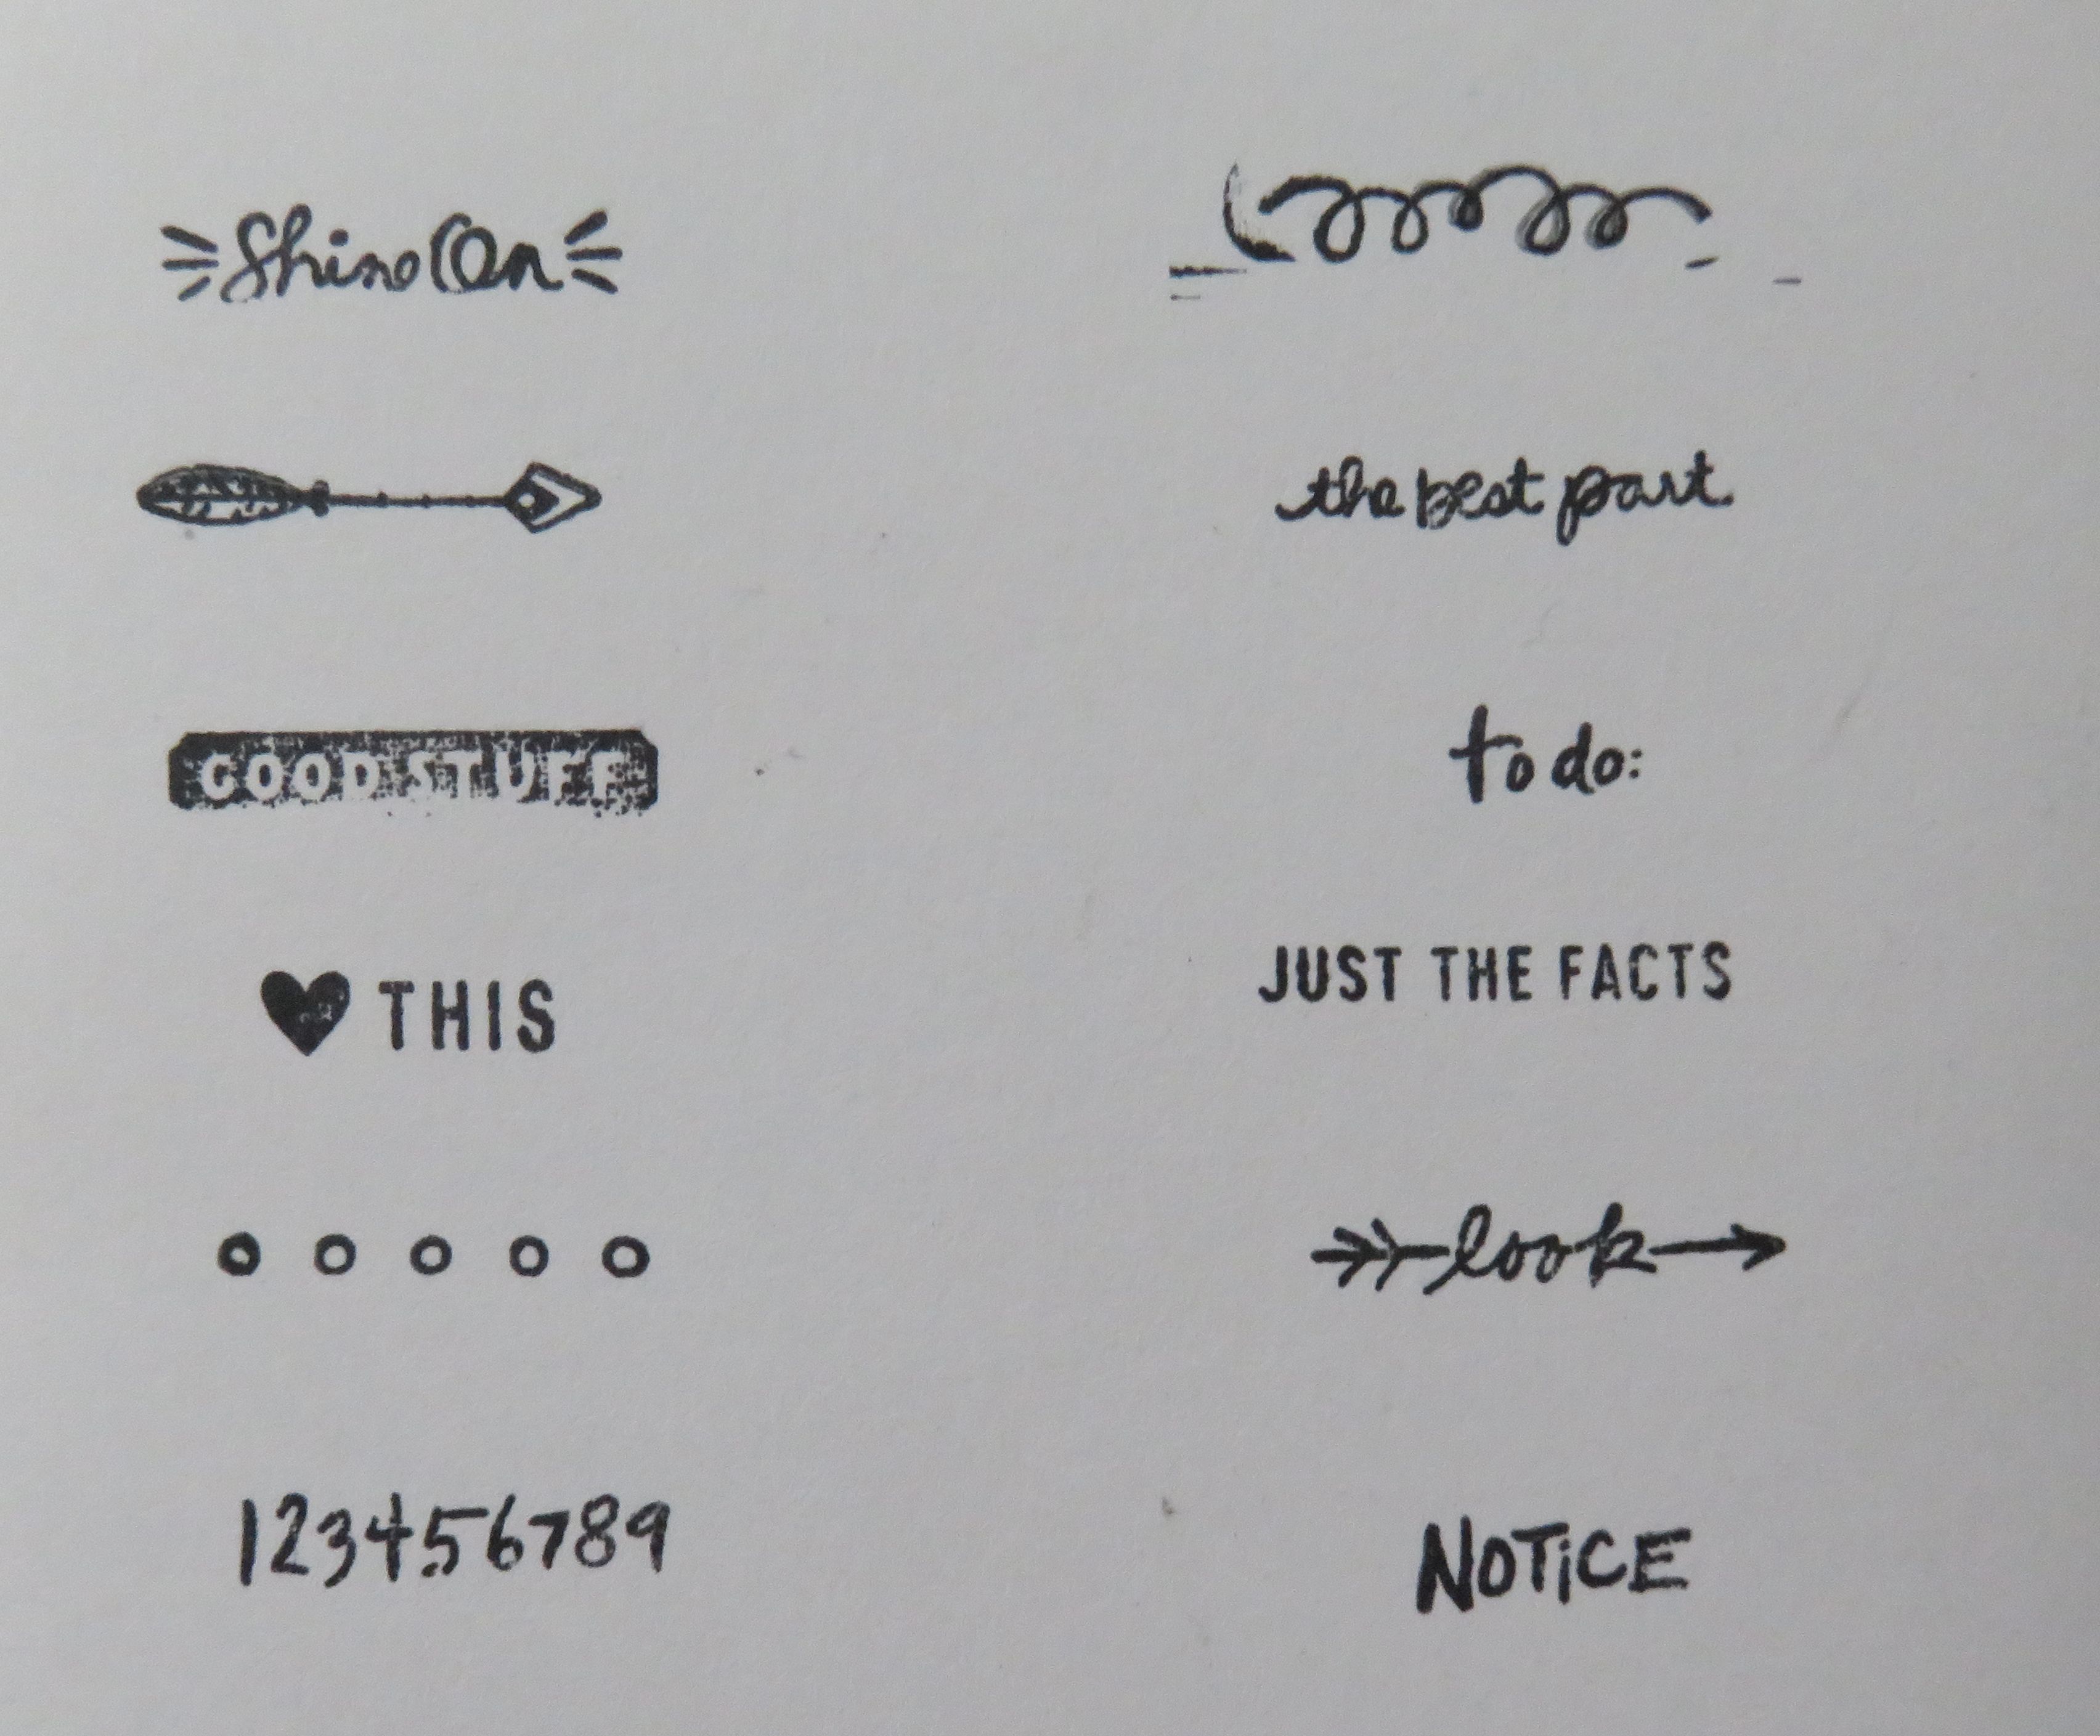 Shine On
the best part
GOOD STUFF
to do:
THIS
JUST THE FACTS
look
123456789
NOTiCE